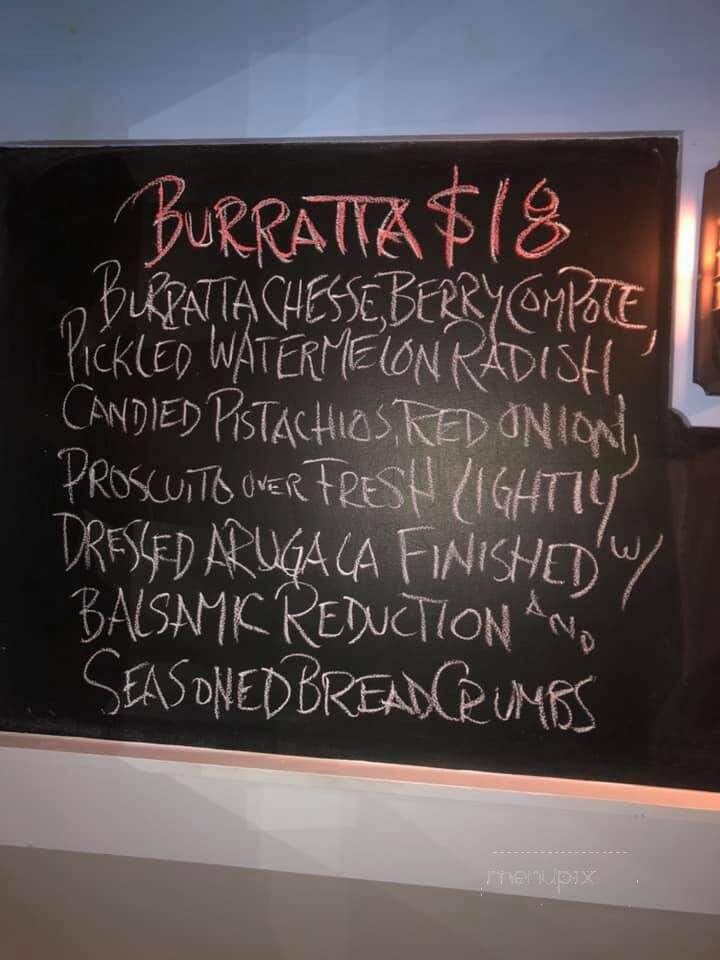 BURRATTA $18
BURRATTA CHESSE, BERRY COMPOTE,
PICKLED WATERMELON RADISH
CANDIED PISTACHIOS, RED ONION,
PROSCUITO OVER FRESH LIGHTLY
DRESSED ARUGALA FINISHED W/
BALSAMIC REDUCTION AND
SEASONED BREADCRUMBS
menupix